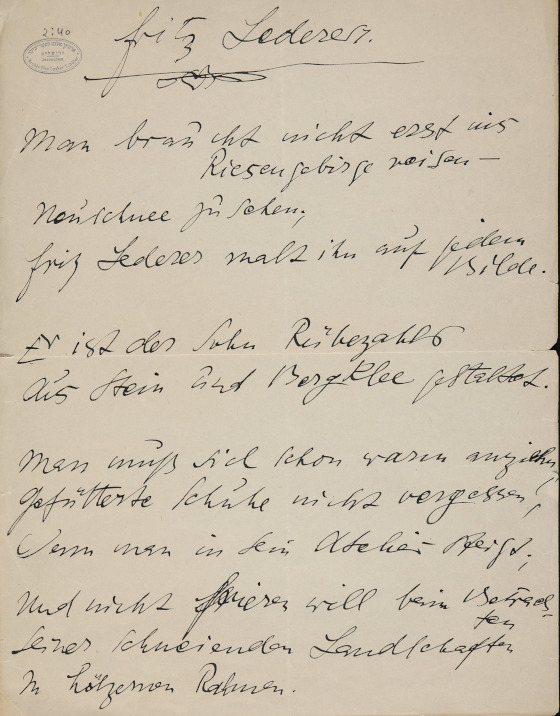 2:40
Fritz Lederer.
Man braucht nicht erst ins
Riesengebirge reisen –
Neuschnee zu sehen;
Fritz Lederer malt ihn auf jedem
Bilde.
Er ist der Sohn Rübezahls
Aus Stein und Bergklee gestaltet.
Man muß sich schon warm anziehn,
Gefütterte Schuhe nicht vergessen,
Wenn man in sein Atelier steigt;
Und nicht frieren will beim Betrach-
ten
Seiner schneienden Landschaften
In hölzernen Rahmen.